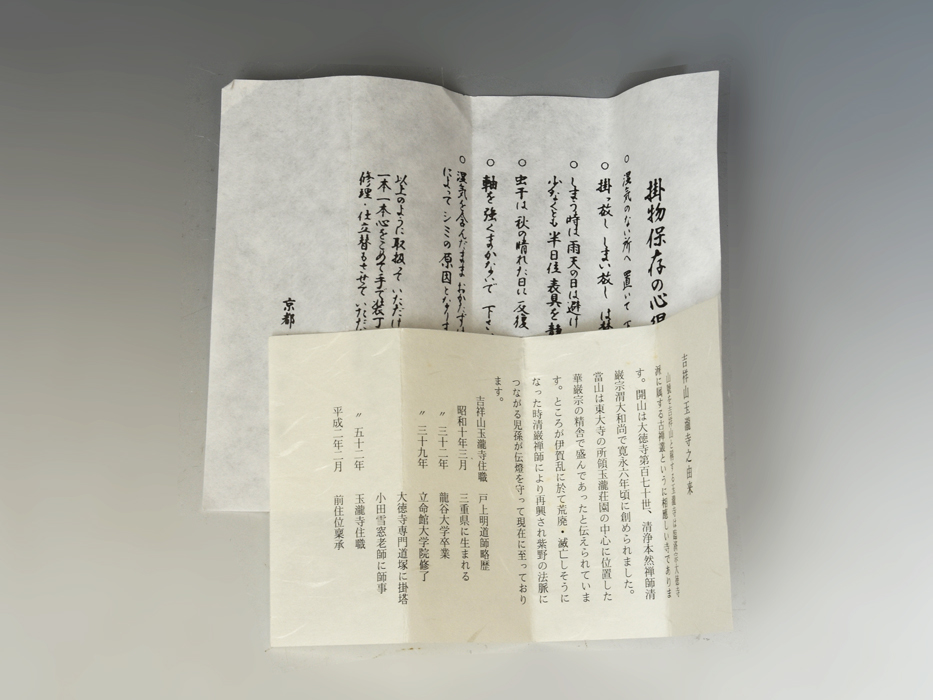 掛物保存の心得
○ 湿気のない所へ 置いて 下
○ 掛っ放し しまい放し は禁
○ しまう時は 雨天の日は避け
少なくとも 半日位 表具を
○ 虫干は 秋の晴れた日に 反復
○ 軸を強くまかないで 下さい
○ 湿気を含んだまま おかたずけ
によって シミの原因となります
以上のように 取扱って いただけ
一本一本心をこめて手で装丁
修理・仕立替もさせて いただ
京都
吉祥山玉瀧寺之由来
山号を吉祥山と称する玉瀧寺は臨済宗大徳寺
派に属する古禅叢というに相応しい寺でありま
す。開山は大徳寺第百七十世、清浄本然禅師清
巌宗渭大和尚で寛永六年頃に創められました。
當山は東大寺の所領玉瀧荘園の中心に位置した
華厳宗の精舎で盛んであったと伝えられていま
す。ところが伊賀乱に於て荒廃・滅亡しそうに
なった時清巌禅師により再興され紫野の法脈に
つながる児孫が伝燈を守って現在に至っており
ます。
吉祥山玉瀧寺住職 戸上明道師略歴
昭和十年三月 三重県に生まれる
〃 三十二年 龍谷大学卒業
〃 三十九年 立命館大学院修了
大徳寺専門道場に掛塔
小田雪窓老師に師事
〃 五十二年 玉瀧寺住職
平成二年二月 前住位稟承